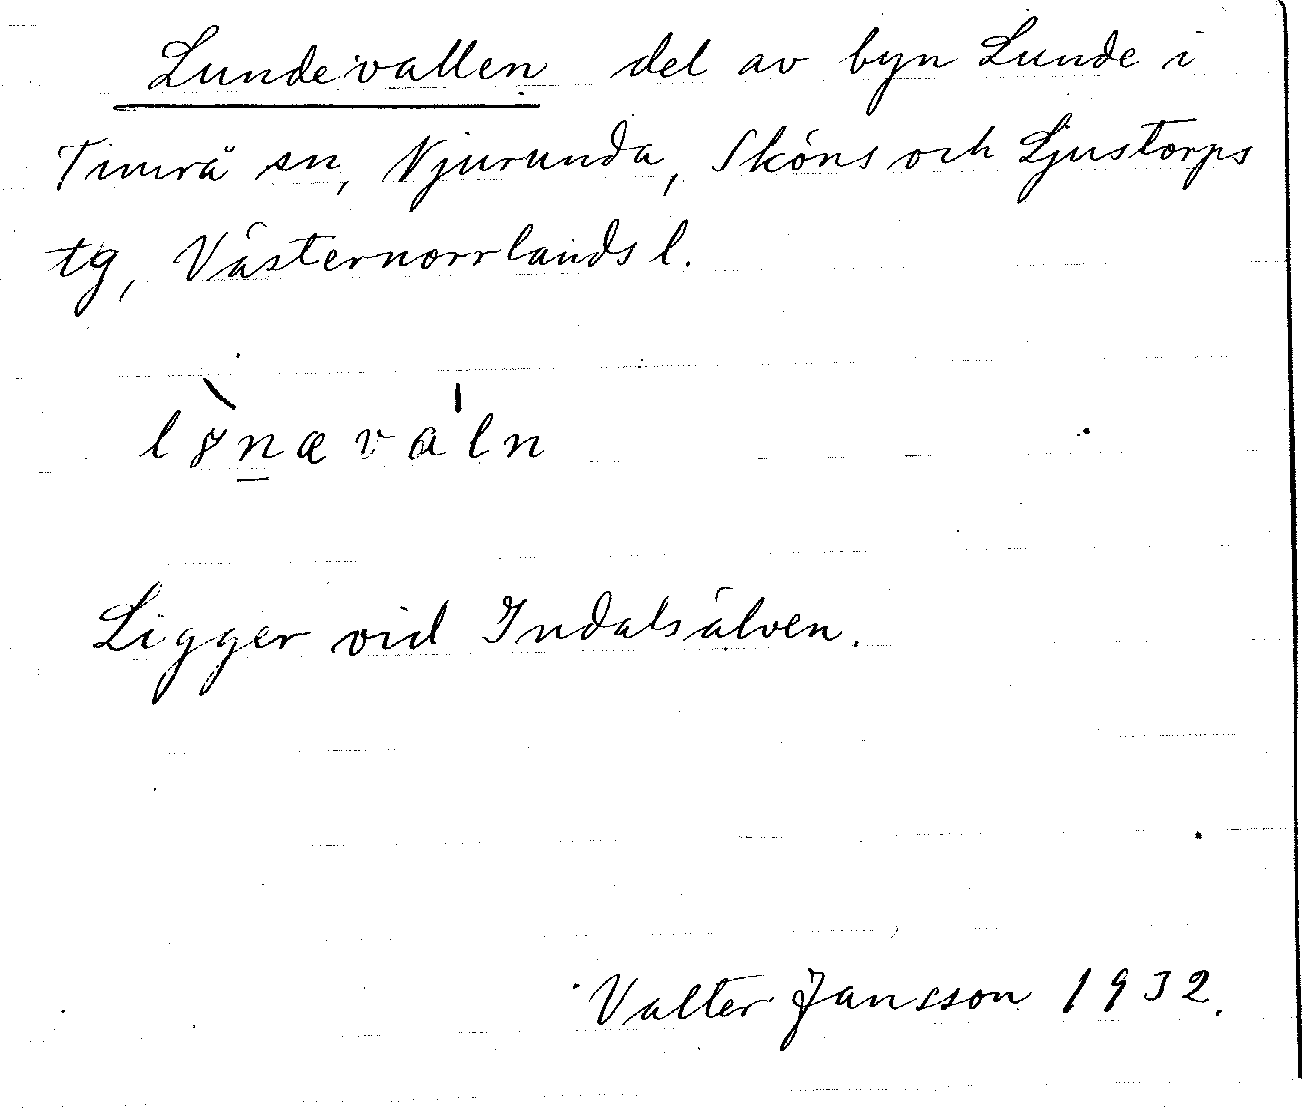 Lundevallen del av byn Lunde i
Timrå sn, Njurunda, Sköns och Ljustorps
tg, Västernorrlands l.
lɤ̀næváln
Ligger vid Indalsälven.
Valter Jansson 1932.